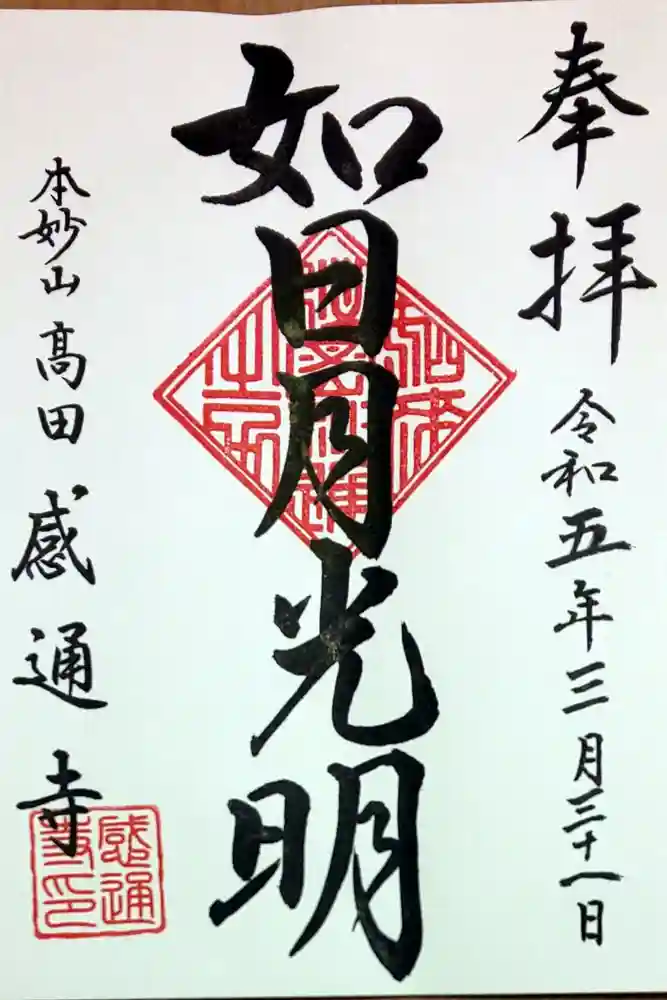 奉拝
令和五年三月三十一日
如日月光明
本妙山高田感通寺
感通
寺印